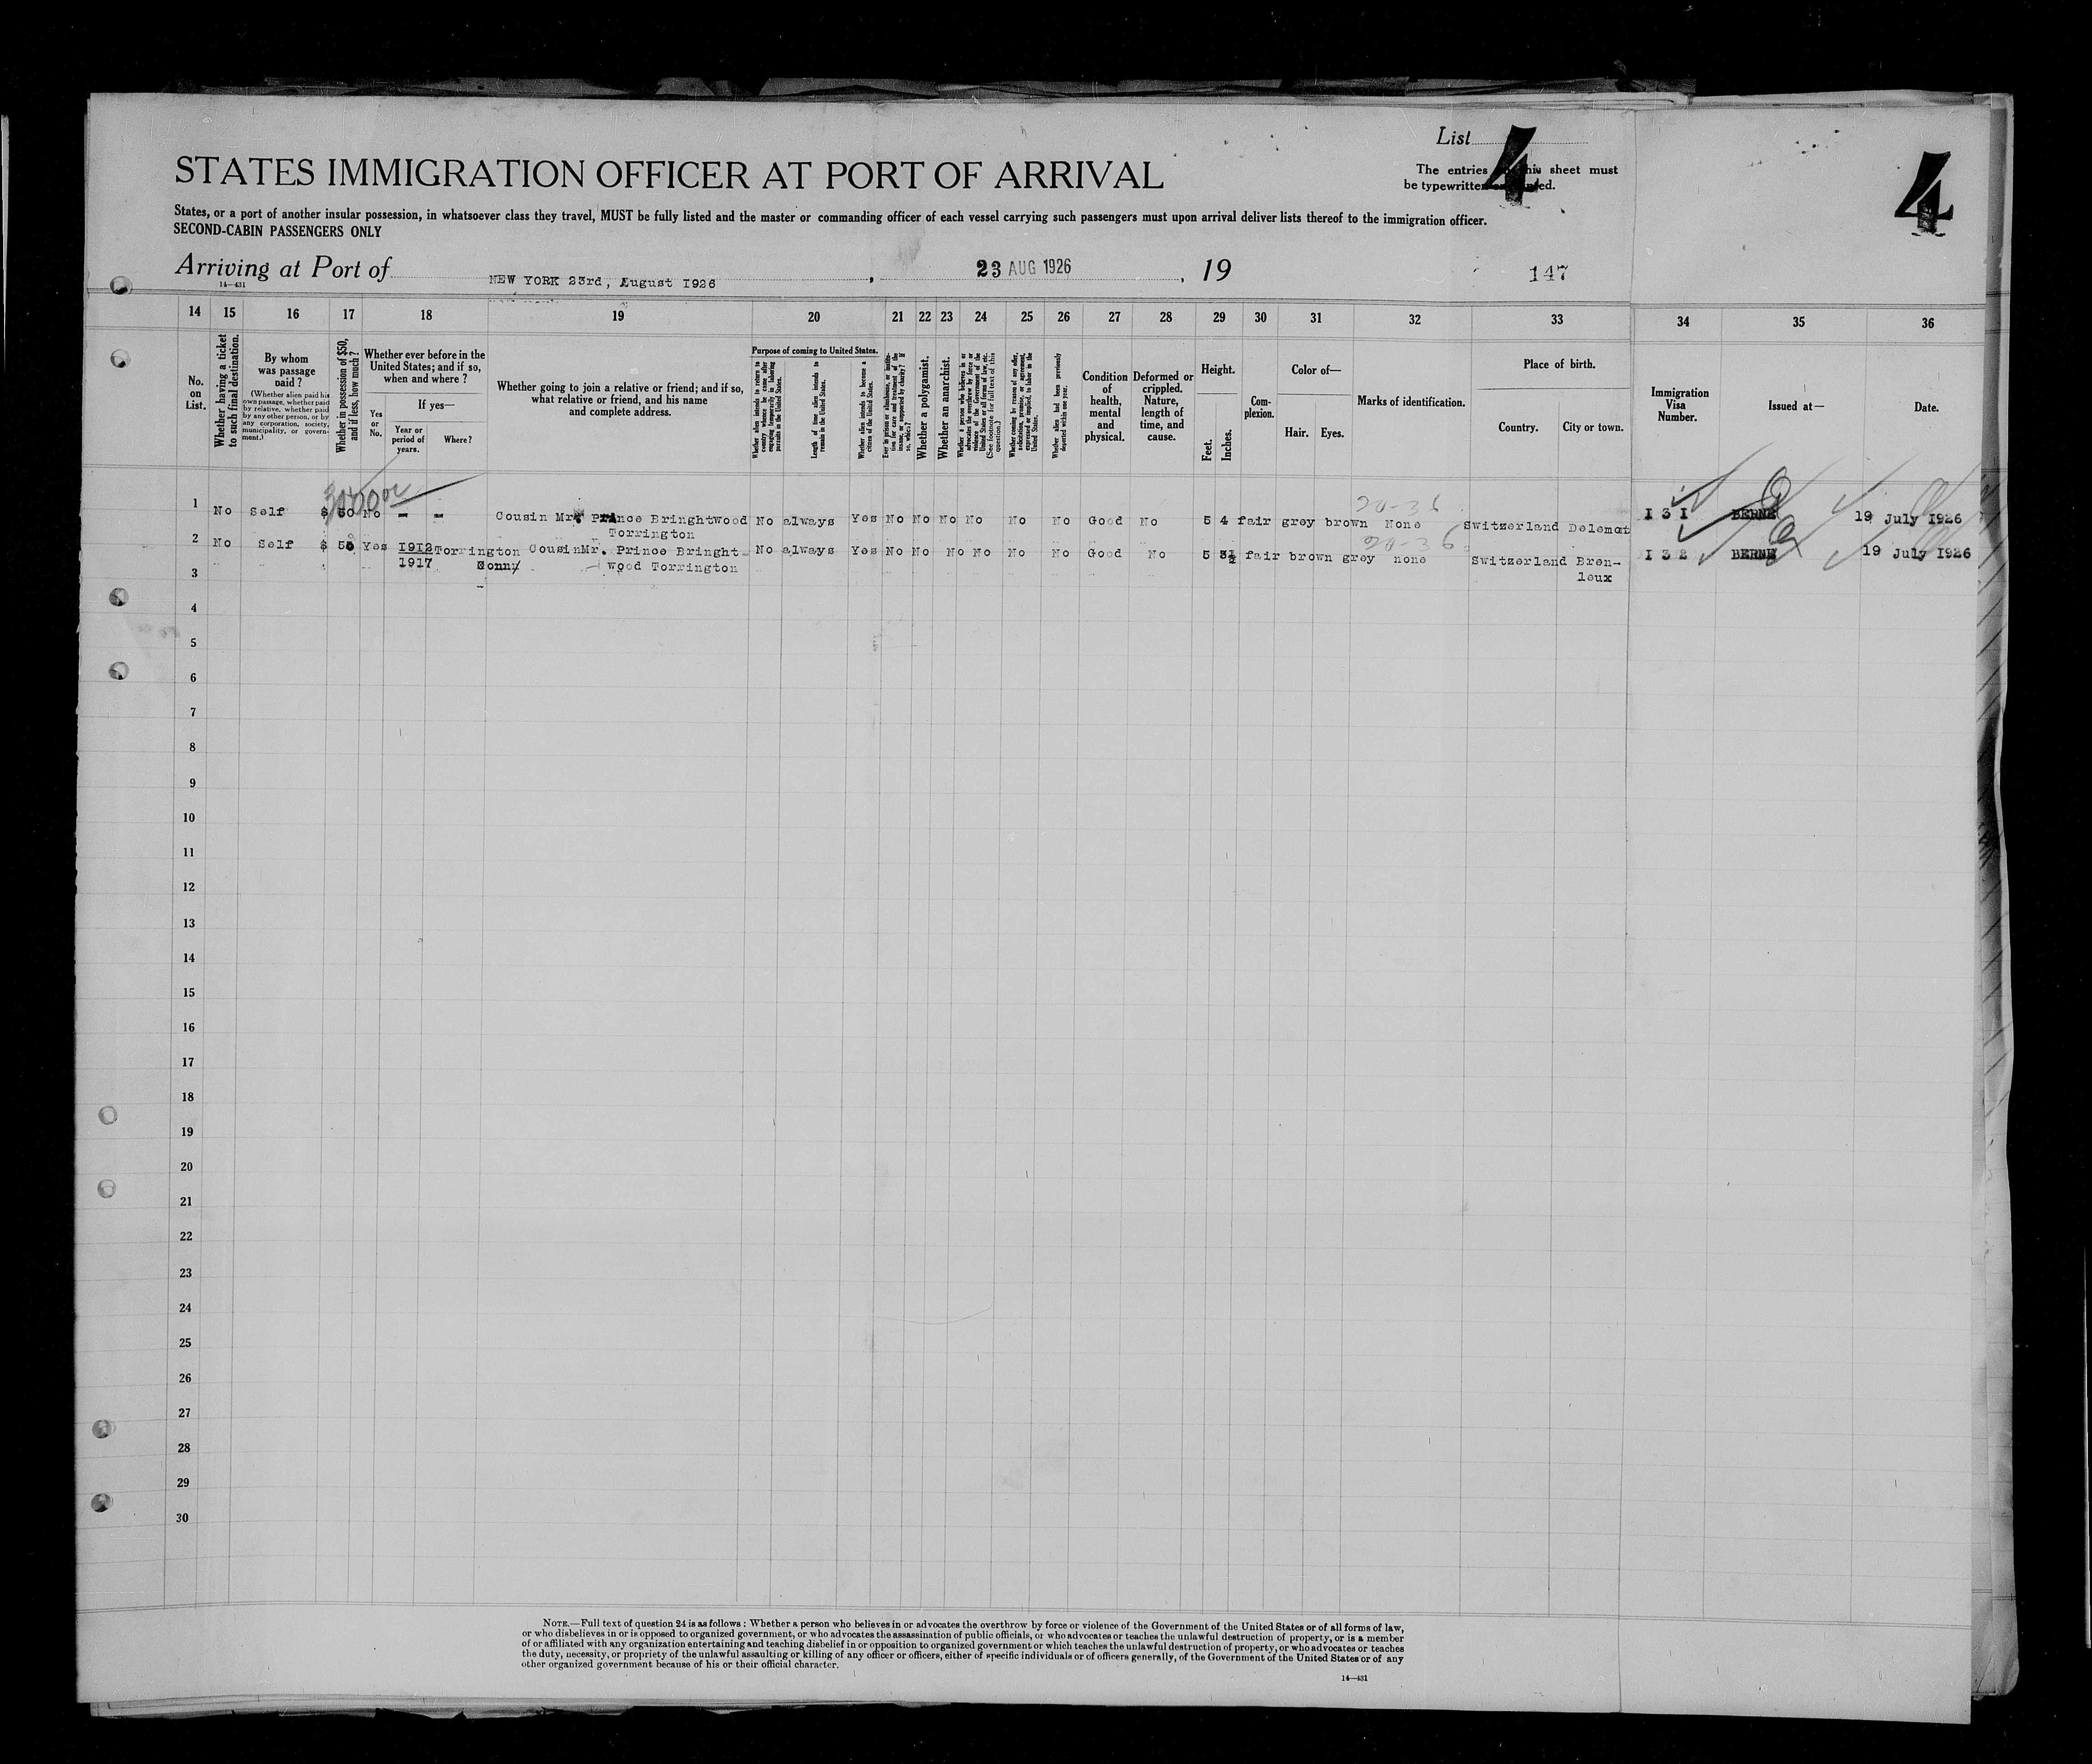 List 4
4
STATES IMMIGRATION OFFICER AT PORT OF ARRIVAL
The entries on this sheet must
be typewritten or printed.
States, or a port of another insular possession, in whatsoever class they travel, MUST be fully listed and the master or commanding officer of each vessel carrying such passengers must upon arrival deliver lists thereof to the immigration officer.
SECOND-CABIN PASSENGERS ONLY
Arriving at Port of NEW YORK 23rd, August 1926, 23 AUG 1926, 19
147
14—431
14 15 16 17 18 19 20 21 22 23 24 25 26 27 28 29 30 31 32 33 34 35 36
No.
on
List.
Whether having a ticket
to such final destination.
By whom
was passage
paid?
(Whether alien paid his
own passage, whether paid
by relative, whether paid
by any other person, or by
any corporation, society,
municipality, or govern-
ment.)
Whether in possession of $50,
and if less, how much?
Whether ever before in the
United States; and if so,
when and where?
Yes
or
No.
If yes—
Year or
period of
years.
Where?
Whether going to join a relative or friend; and if so,
what relative or friend, and his name
and complete address.
Purpose of coming to United States.
Whether alien intends to return to
country whence he came after
engaging temporarily in laboring
pursuits in the United States.
Length of time alien intends to
remain in the United States.
Whether alien intends to become a
citizen of the United States.
Ever in prison or almshouse, or institu-
tion for care and treatment of the
insane, or supported by charity? If
so, which?
Whether a polygamist.
Whether an anarchist.
Whether a person who believes in or
advocates the overthrow by force or
violence of the Government of the
United States or all forms of law, etc.
(See footnote for full text of this
question.)
Whether coming by reason of any offer,
solicitation, promise, or agreement,
expressed or implied, to labor in the
United States.
Whether alien had been previously
deported within one year.
Condition
of
health,
mental
and
physical.
Deformed or
crippled.
Nature,
length of
time, and
cause.
Height.
Feet.
Inches.
Com-
plexion.
Color of—
Hair.
Eyes.
Marks of identification.
Place of birth.
Country.
City or town.
Immigration
Visa
Number.
Issued at—
Date.
1 No Self $ 50 No - - Cousin Mr. Prince Bringhtwood No always Yes No No No No No No Good No 5 4 fair grey brown None Switzerland Delemot I 3 I BERNE 19 July I926
Torrington
2 No Self $ 50 Yes 1912 Torrington Cousin Mr. Prince Bringht- No always Yes No No No No No No Good No 5 3½ fair brown grey none Switzerland Bren- I 3 2 BERNE 19 July I926
1917 Conn wood Torrington leux
3
4
5
6
7
8
9
10
11
12
13
14
15
16
17
18
19
20
21
22
23
24
25
26
27
28
29
30
NOTE.—Full text of question 24 is as follows: Whether a person who believes in or advocates the overthrow by force or violence of the Government of the United States or of all forms of law,
or who disbelieves in or is opposed to organized government, or who advocates the assassination of public officials, or who advocates or teaches the unlawful destruction of property, or is a member
of or affiliated with any organization entertaining and teaching disbelief in or opposition to organized government or which teaches the unlawful destruction of property, or who advocates or teaches
the duty, necessity, or propriety of the unlawful assaulting or killing of any officer or officers, either of specific individuals or of officers generally, of the Government of the United States or of any
other organized government because of his or their official character.
14—431